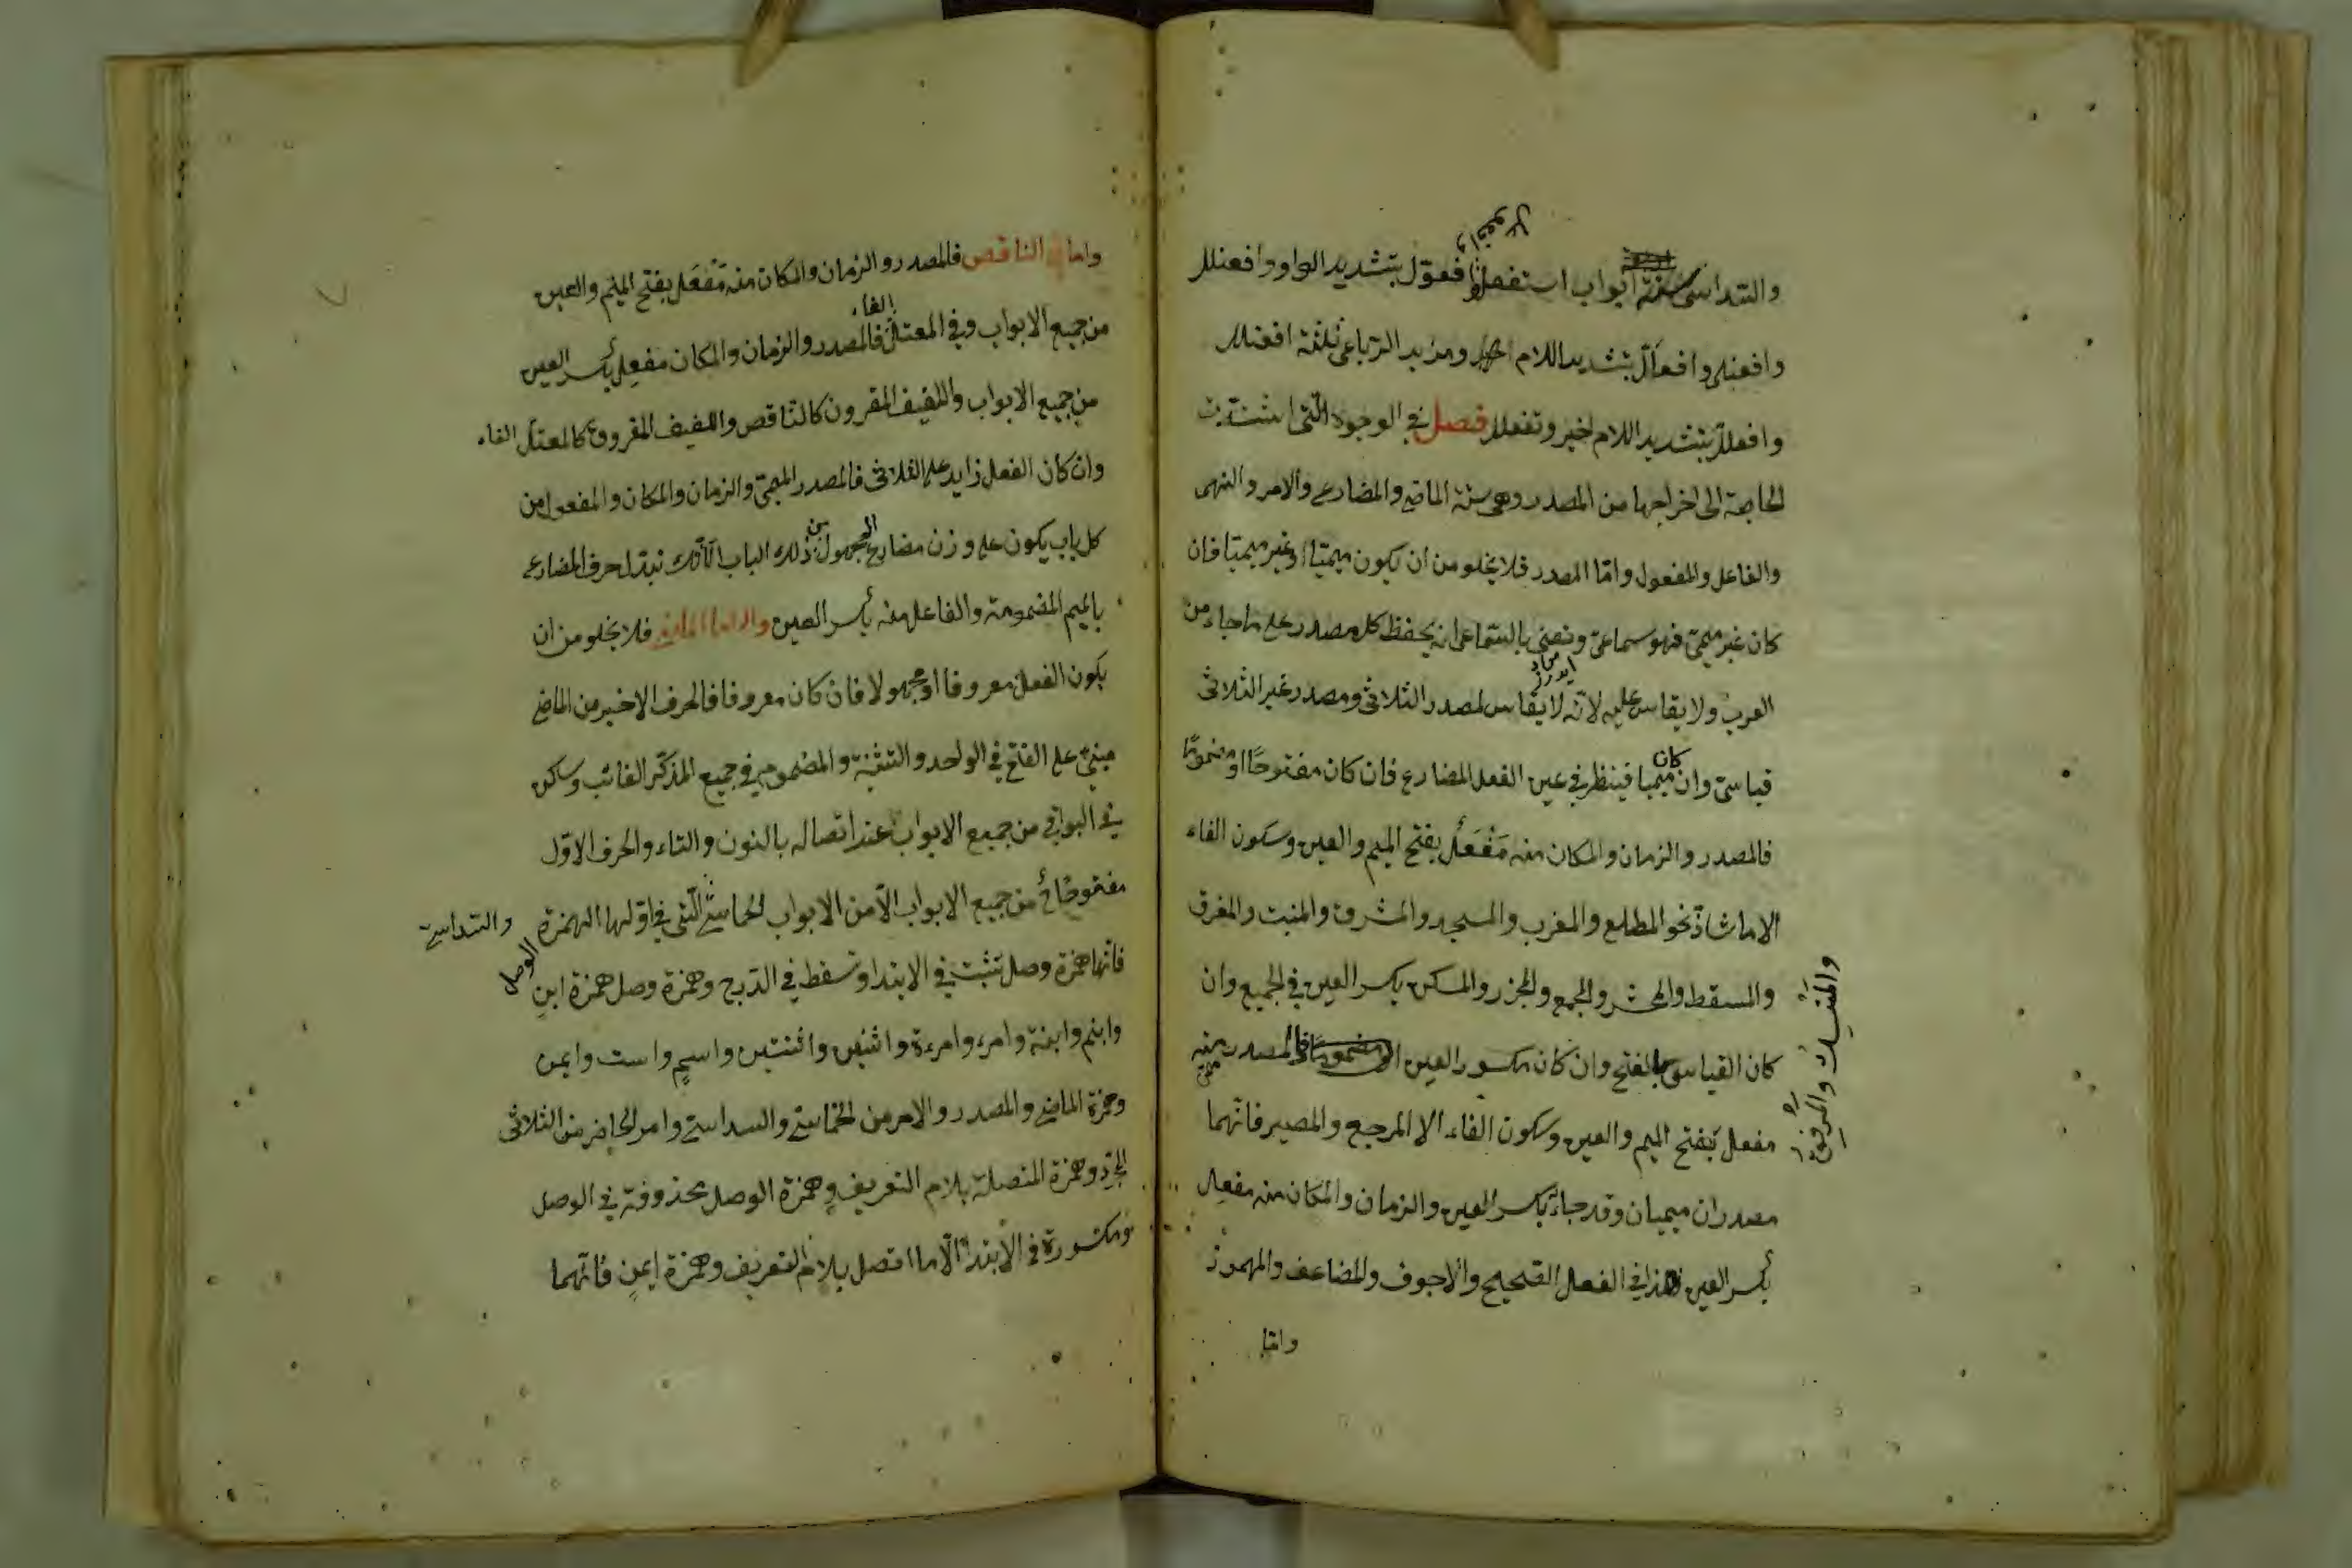 والسداسى ستة ابواب استفعل وافعوّل بتشديد الواو وافعنلل
وافعوعل
وافعنلى وافعالّ بتشديد اللام ومزيد الرباعى ثلثة افعنلل
وافعللّ بتشديد اللام اخير وتفعلل فصل فى الوجوه التى اشتدت
الحاجة الى اخراجها من المصدر وهى ستة الماضى والمضارع والامر والنهى
والفاعل والمفعول وامّا المصدر فلا يخلو من ان يكون ميميّا او غير ميميّا فان
كان غير ميمىّ فهو سماعىّ ونعنى بالسّماعى انه يحفظ كل مصدر على ما جاء من
العرب ولا يقاس عليه لانّه لا يقاس لمصدر الثلاثى ومصدر غير الثلاثى
قياسىّ وان كان ميميا فينظر فى عين الفعل المضارع فان كان مفتوحًا او مضمومًا
فالمصدر والزمان والمكان منه مَفْعَل بفتح الميم والعين وسكون الفاء
الا ما شاذّ نحو المطلع والمغرب والمسجد والمشرق والمنبت والمفرق
والمسقط والمحشر والمجمع والمجزر والمسكن بكسر العين فى الجميع وان
والمنسك والمرفق
كان القياس بالفتح وان كان مكسور العين فالمصدر منه
مفعل بفتح الميم والعين وسكون الفاء الا المرجع والمصير فانّهما
مصدران ميميان وقد جاءَ بكسر العين والزمان والمكان منه مفعِل
بكسر العين هذا فى الفعل الصّحيح والاجوف والمضاعف والمهموز
وامّا
واما الناقص فالمصدر والزمان والمكان منه مَفْعَل بفتح الميم والعين
من جميع الابواب وفى المعتل الفاء فالمصدر والزمان والمكان مفعِل بكسر العين
من جميع الابواب واللفيف المقرون كالنّاقص واللفيف المفروق كالمعتلّ الفاء
وان كان الفعل زايد على الثلاثى فالمصدر الميمىّ والزمان والمكان والمفعول من
كل باب يكون على وزن مضارع المجهول من ذلك الباب الّا انّك تبدّل حرف المضارع
بالميم المضمومة والفاعل منه بكسر العين وامّا الماضى فلا يخلو من ان
يكون الفعل معروفا او مجهولا فان كان معروفا فالحرف الاخير من الماضى
مبنىّ على الفتح فى الواحد والتثنية والمضموم فى جميع المذكّر الغائب وساكن
فى البواقى من جميع الابواب عند اتصاله بالنون والتاء والحرف الاوّل
مفتوحًا من جميع الابواب الّا من الابواب الخماسى التى فى اوّلها الهمزة والسداسى
فانّها همزة وصل تثبت فى الابتدا وتسقط فى الدّرج وهمزة وصل همزة ابنٍ
الوصل
وابنم وابنة وامرء وامرءة واثنين واثنتين واسمٍ واست وايمن
وهمزة الماضى والمصدر والامر من الخماسى والسداسى وامر الحاضر من الثلاثى
المجرّد وهمزة المتصلة بلام التعريف وهمزة الوصل محذوفة فى الوصل
ومكسورة فى الابتدا الّا ما اتصل بلام التعريف وهمزة ايمنٍ فانّهما